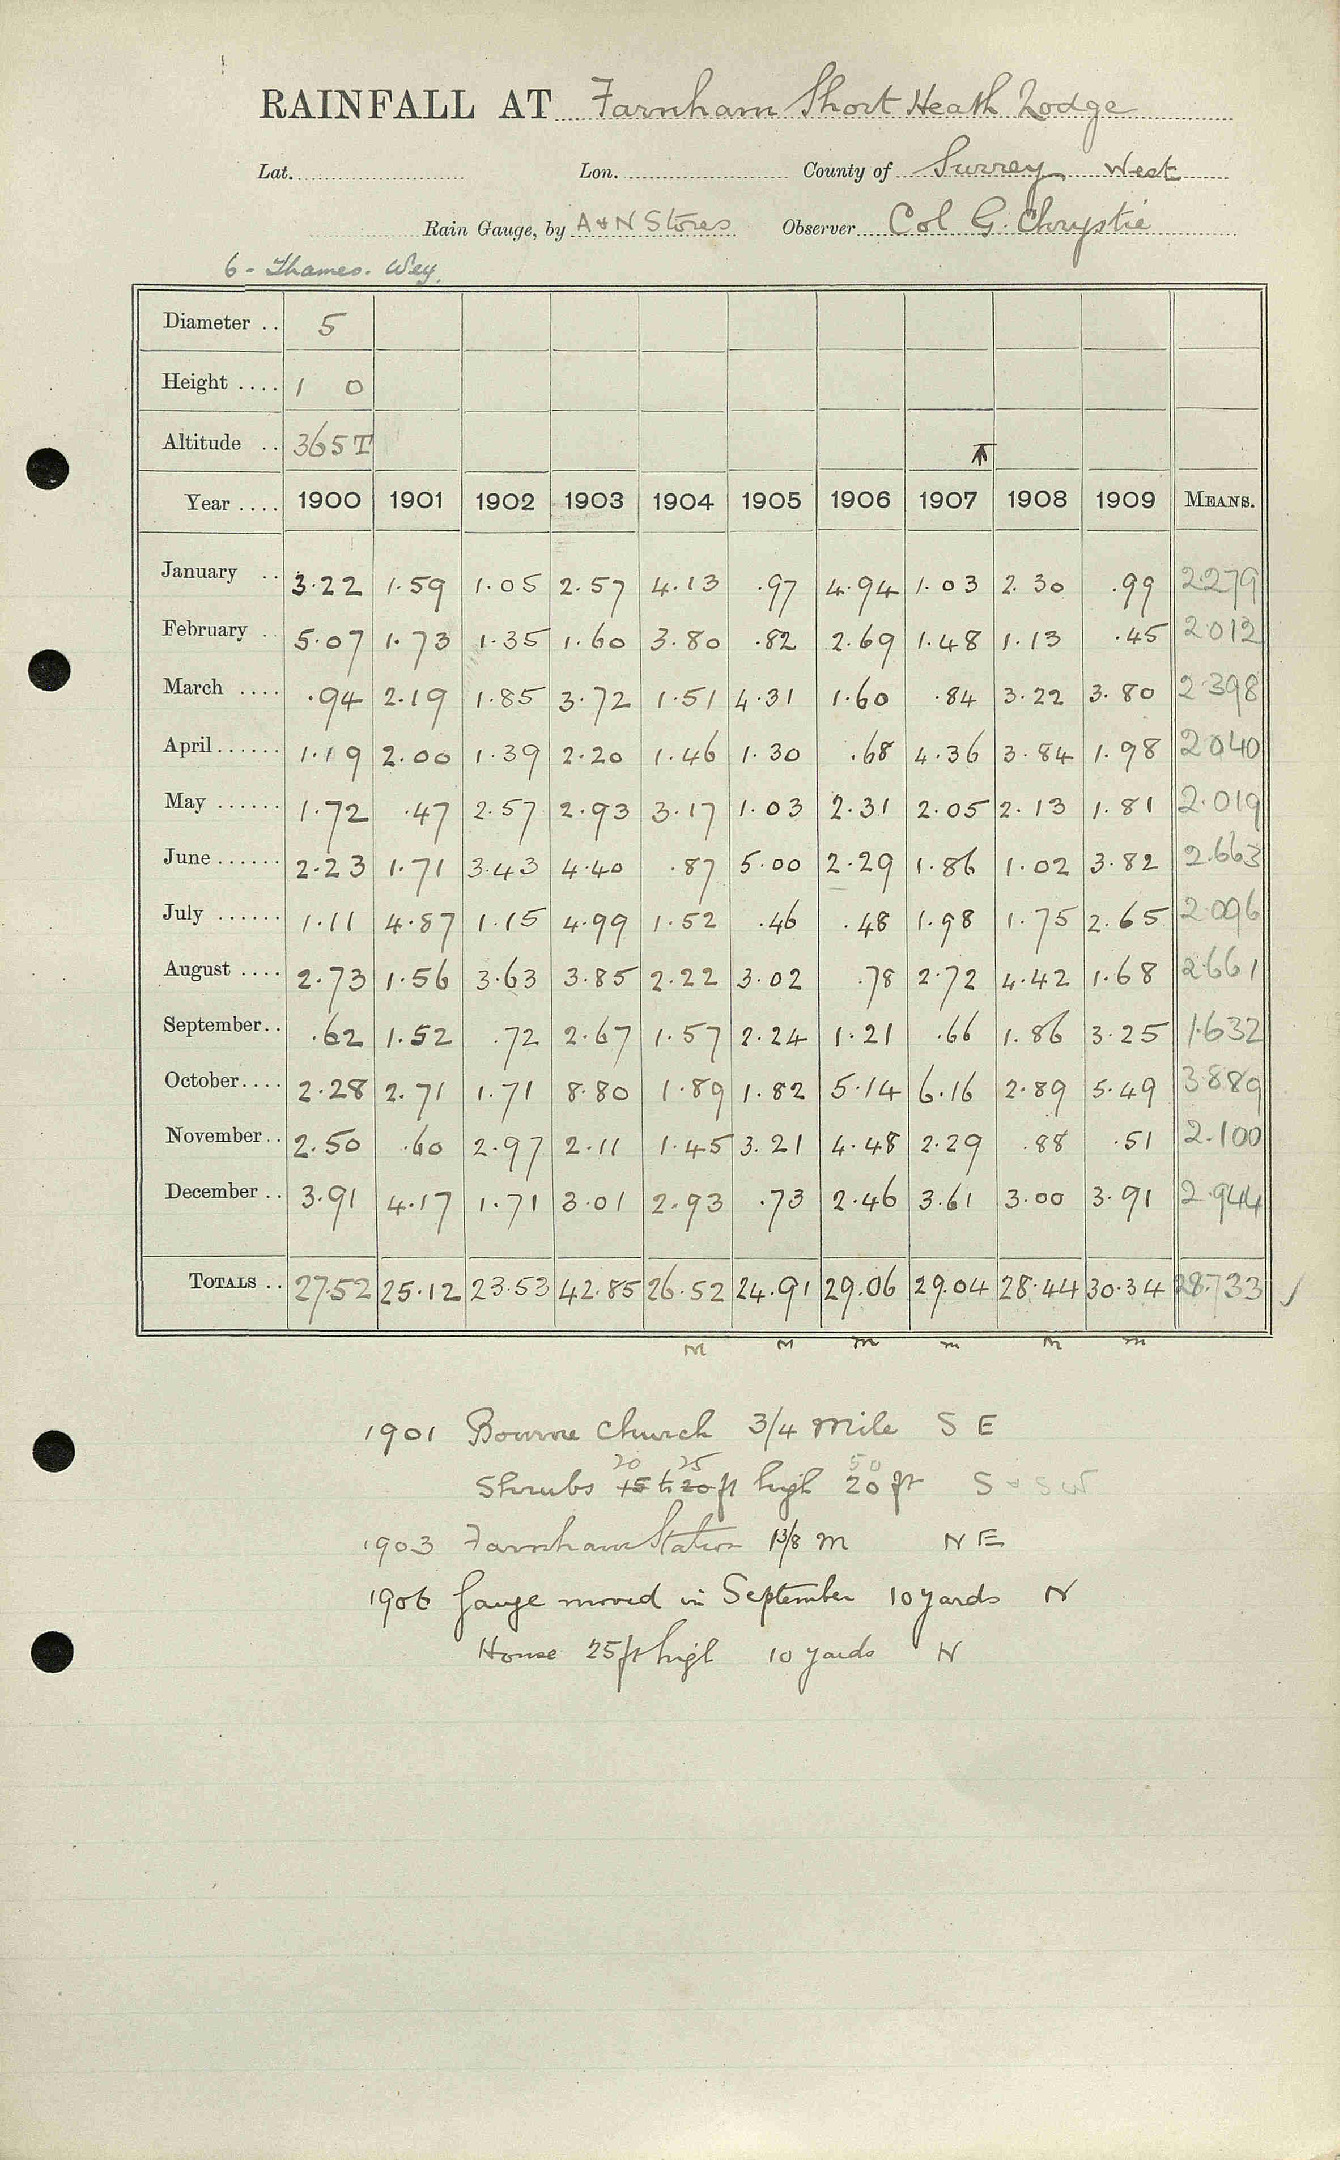 RAINFALL AT Farnham Short Heath Lodge
Lat. Lon. County of Surrey West
Rain Gauge, by A & N Stores Observer Col G. Chrystie
6 - Thames. Wey.
Diameter .. 5
Height .... 1 0
Altitude .. 365 T
Year .... 1900 1901 1902 1903 1904 1905 1906 1907 1908 1909 MEANS.
January .. 3.22 1.59 1.05 2.57 4.13 .97 4.94 1.03 2.30 .99 2.279
February .. 5.07 1.73 1.35 1.60 3.80 .82 2.69 1.48 1.13 .45 2.012
March .... .94 2.19 1.85 3.72 1.51 4.31 1.60 .84 3.22 3.80 2.398
April ...... 1.19 2.00 1.39 2.20 1.46 1.30 .68 4.36 3.84 1.98 2.040
May ...... 1.72 .47 2.57 2.93 3.17 1.03 2.31 2.05 2.13 1.81 2.019
June ...... 2.23 1.71 3.43 4.40 .87 5.00 2.29 1.86 1.02 3.82 2.663
July ...... 1.11 4.87 1.15 4.99 1.52 .46 .48 1.98 1.75 2.65 2.096
August .... 2.73 1.56 3.63 3.85 2.22 3.02 .78 2.72 4.42 1.68 2.661
September .. .62 1.52 .72 2.67 1.57 2.24 1.21 .66 1.86 3.25 1.632
October .... 2.28 2.71 1.71 8.80 1.89 1.82 5.14 6.16 2.89 5.49 3.889
November .. 2.50 .60 2.97 2.11 1.45 3.21 4.48 2.29 .88 .51 2.100
December .. 3.91 4.17 1.71 3.01 2.93 .73 2.46 3.61 3.00 3.91 2.944
TOTALS .. 27.52 25.12 23.53 42.85 26.52 24.91 29.06 29.04 28.44 30.34 28.733 ✓
M M M M M M
1901 Bourne Church 3/4 Mile S E
20 25 50
Shrubs 15 to 20 ft high 20 ft S & SW
1903 Farnham Station 1 3/8 m N E
1906 Gauge moved in September 10 yards N
House 25 ft high 10 yards N